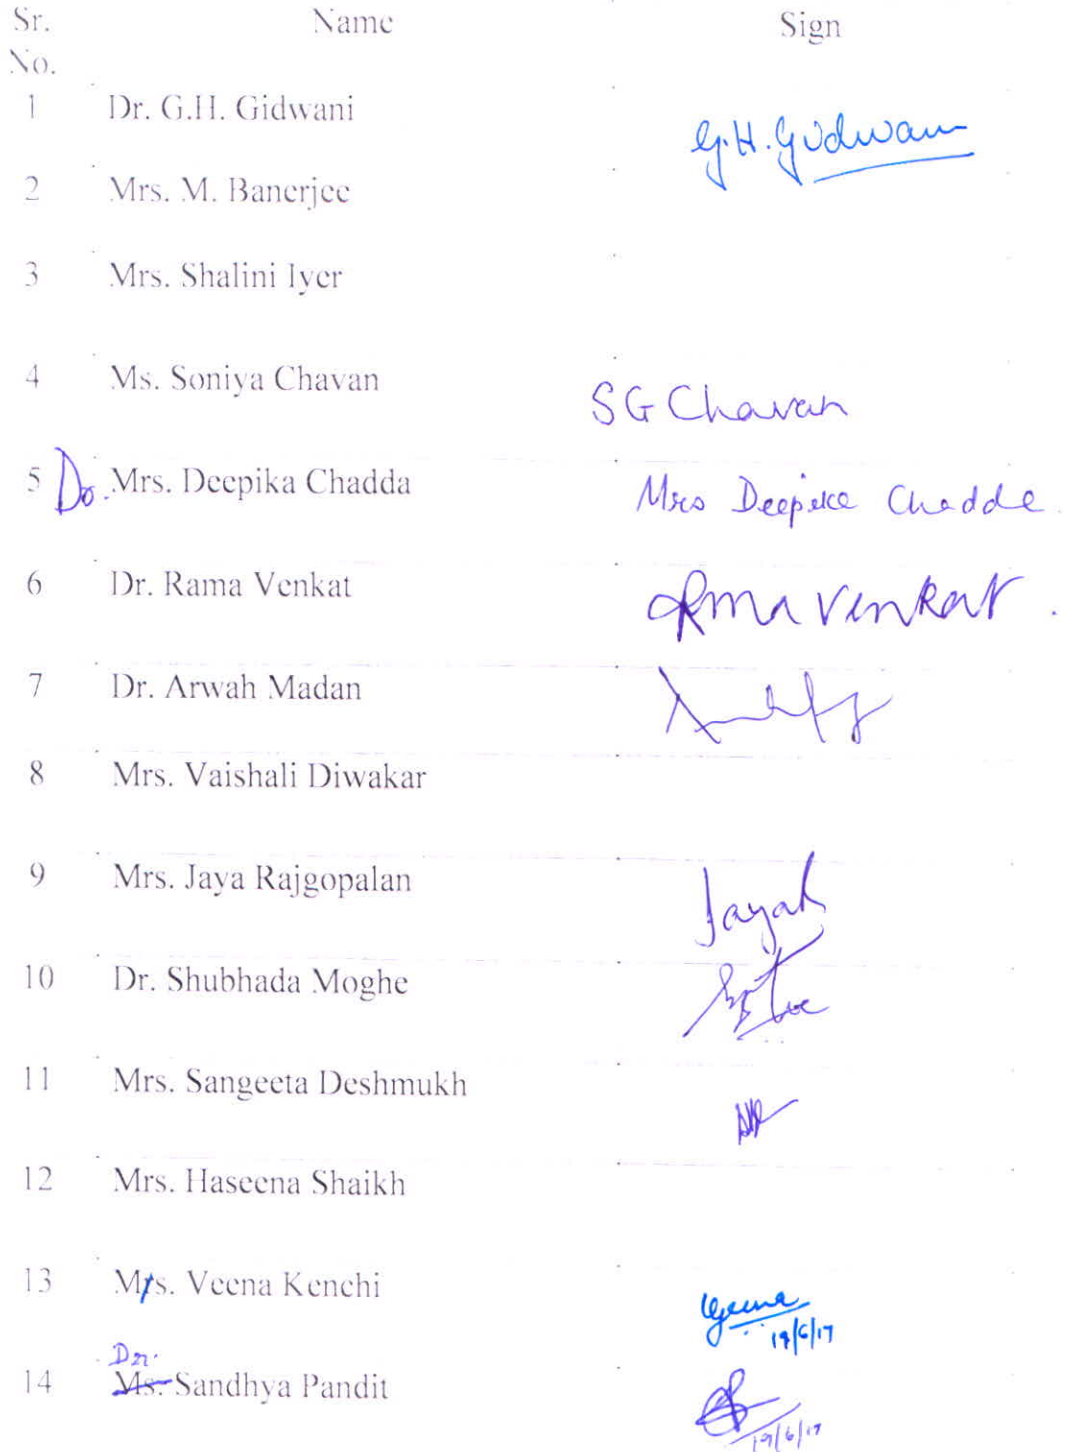 Sr. Name Sign
No.
1 Dr. G.H. Gidwani G.H. Gidwani
2 Mrs. M. Banerjee
3 Mrs. Shalini Iyer
4 Ms. Soniya Chavan SG Chavan
5 Dr. Mrs. Deepika Chadda Mrs Deepika Chadda
6 Dr. Rama Venkat Rama Venkat
7 Dr. Arwah Madan
8 Mrs. Vaishali Diwakar
9 Mrs. Jaya Rajgopalan
10 Dr. Shubhada Moghe
11 Mrs. Sangeeta Deshmukh
12 Mrs. Haseena Shaikh
13 Mrs. Veena Kenchi
19/6/17
Dr.
14 Ms. Sandhya Pandit
19/6/17